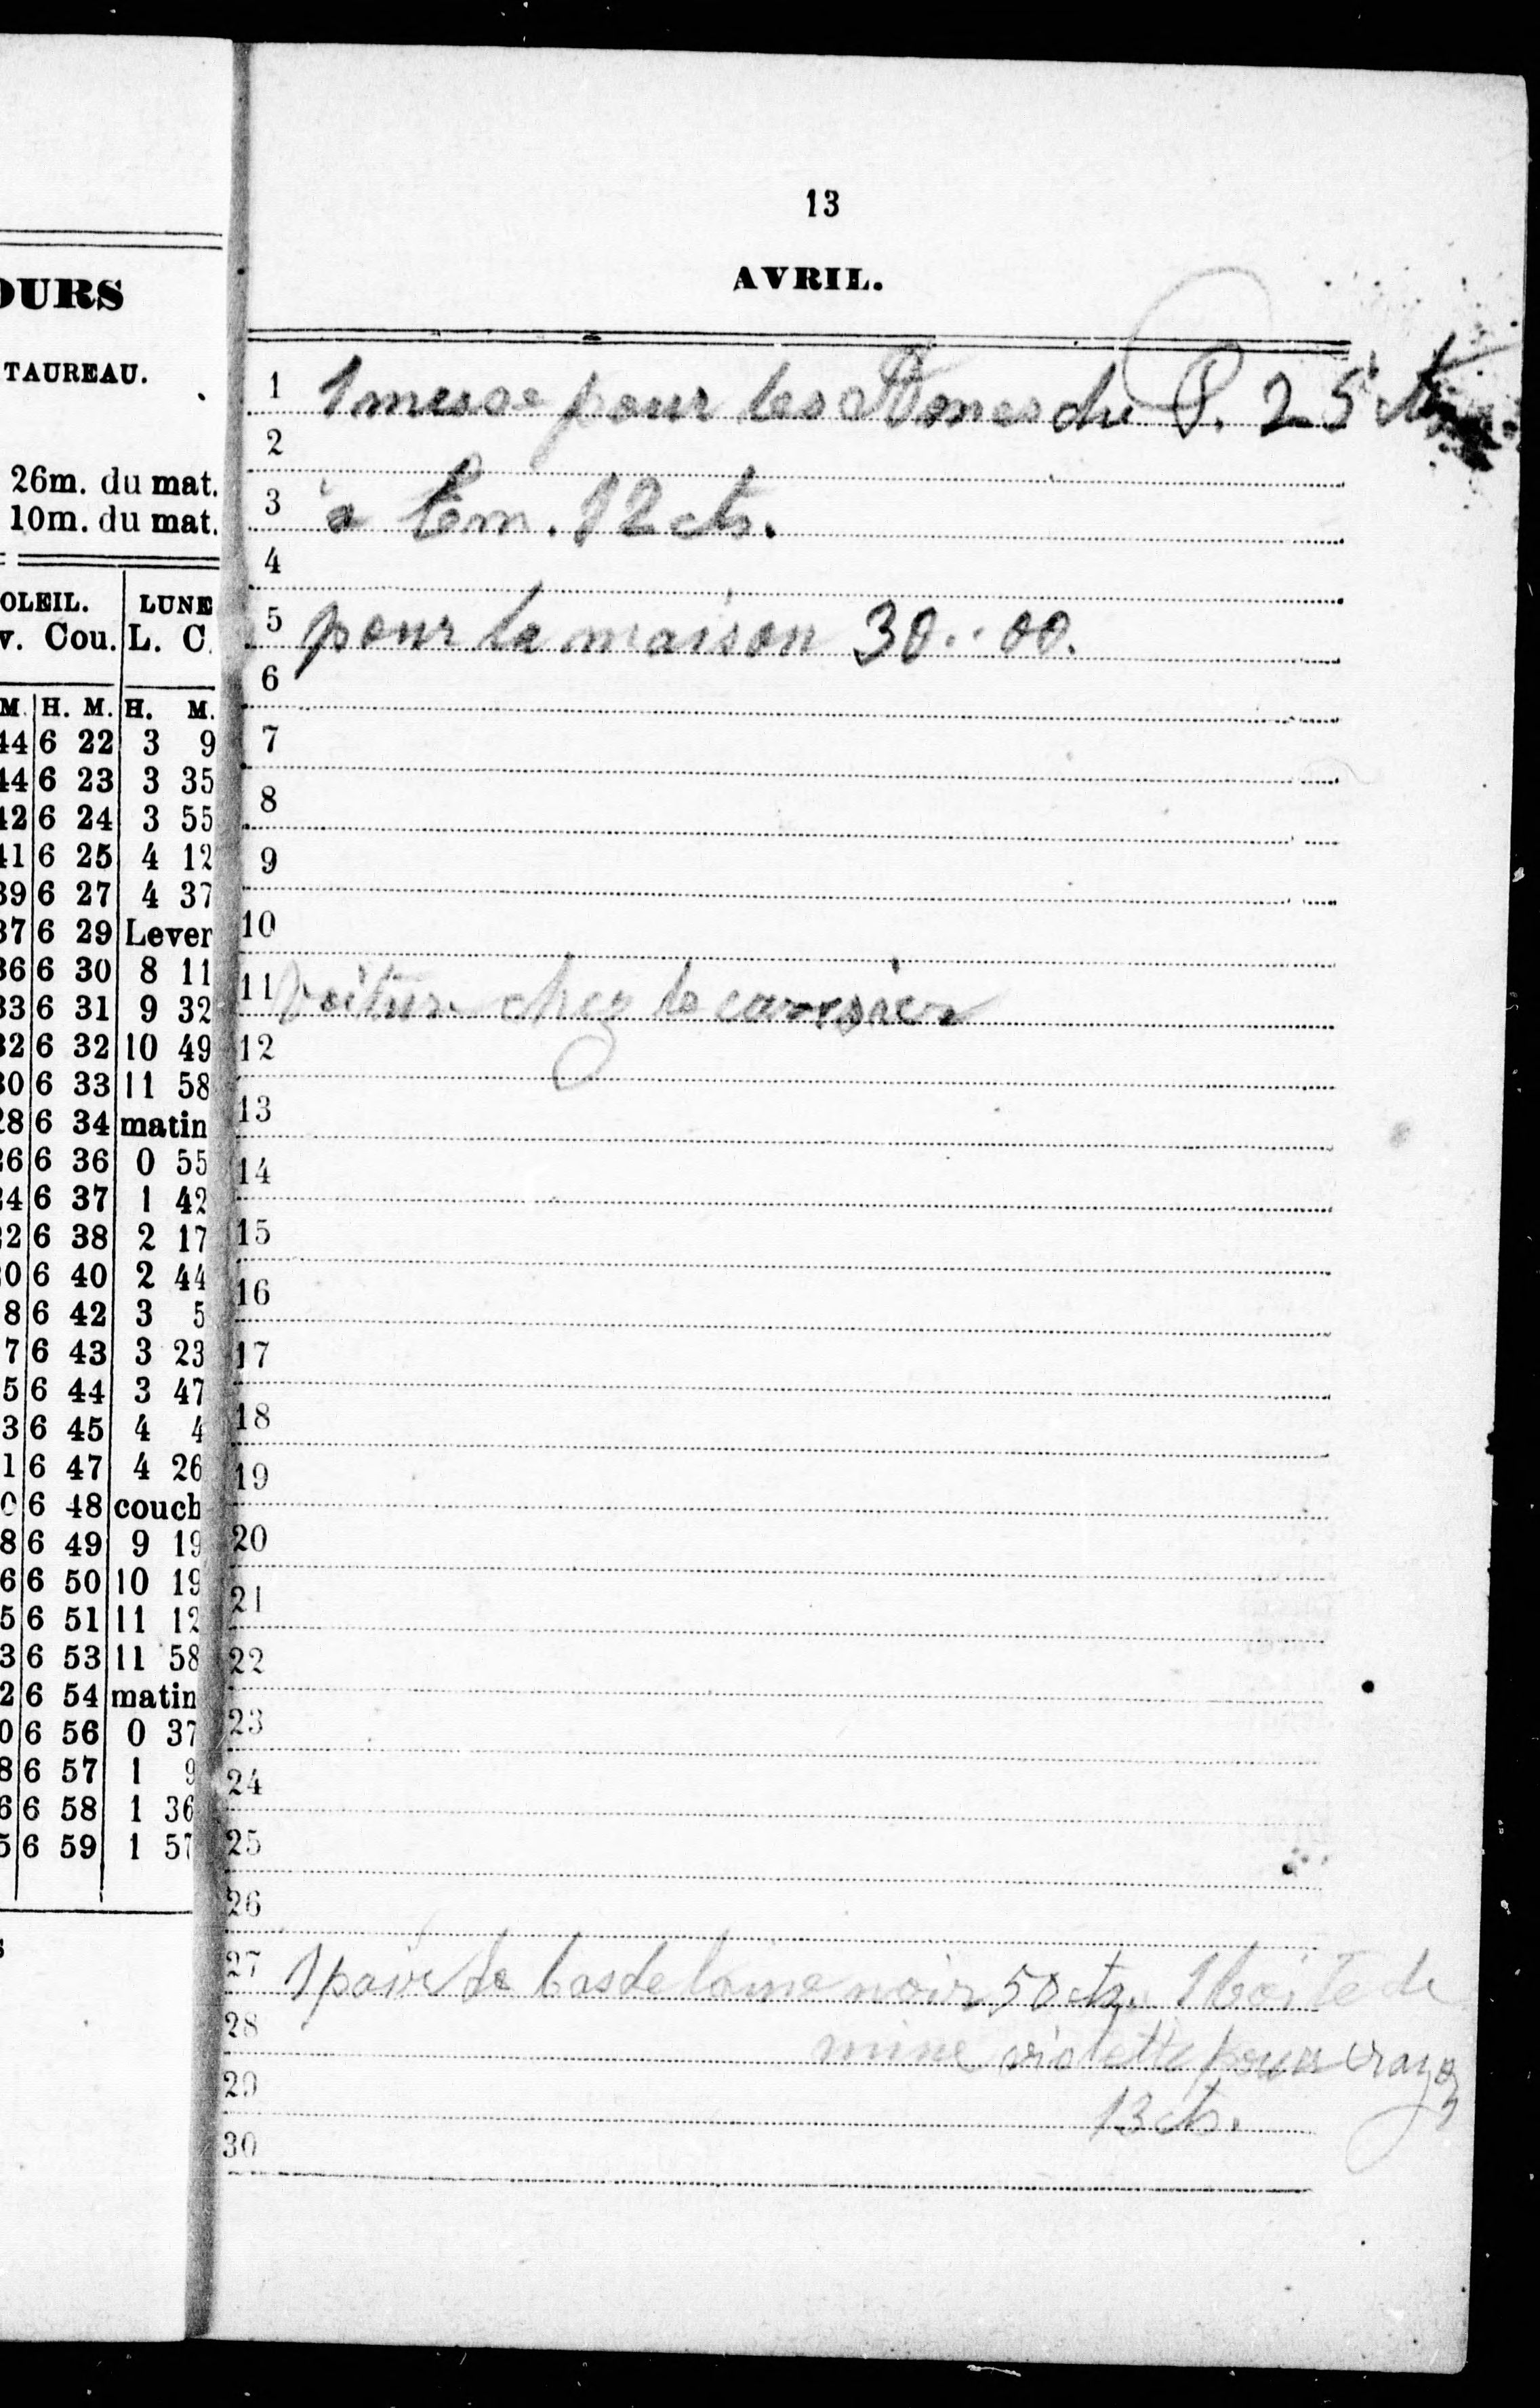 OURS
TAUREAU.
26m. du mat.
10m. du mat.
OLEIL. LUNE
v. Cou. L. C.
M. H. M. H. M.
44 6 22 3 9
44 6 23 3 35
42 6 24 3 55
41 6 25 4 12
39 6 27 4 37
37 6 29 Lever
36 6 30 8 11
33 6 31 9 32
32 6 32 10 49
30 6 33 11 58
28 6 34 matin
26 6 36 0 55
24 6 37 1 42
22 6 38 2 17
20 6 40 2 44
8 6 42 3 5
7 6 43 3 23
5 6 44 3 47
3 6 45 4 4
1 6 47 4 26
0 6 48 couch
8 6 49 9 19
6 6 50 10 19
5 6 51 11 12
3 6 53 11 58
2 6 54 matin
0 6 56 0 37
8 6 57 1 9
6 6 58 1 36
5 6 59 1 57
s
13
AVRIL.
1 1 messe pour les Âmes du P. 25 cts
2
3 a Em. 12 cts.
4
5 pour la maison 30.. 00.
6
7
8
9
10
11 Voiture chez le
12
13
14
15
16
17
18
19
20
21
22
23
24
25
26
27 1 paire de bas de laine noir 50 cts. 1 boite de
28 mine violette pour crayon
29 13 cts.
30